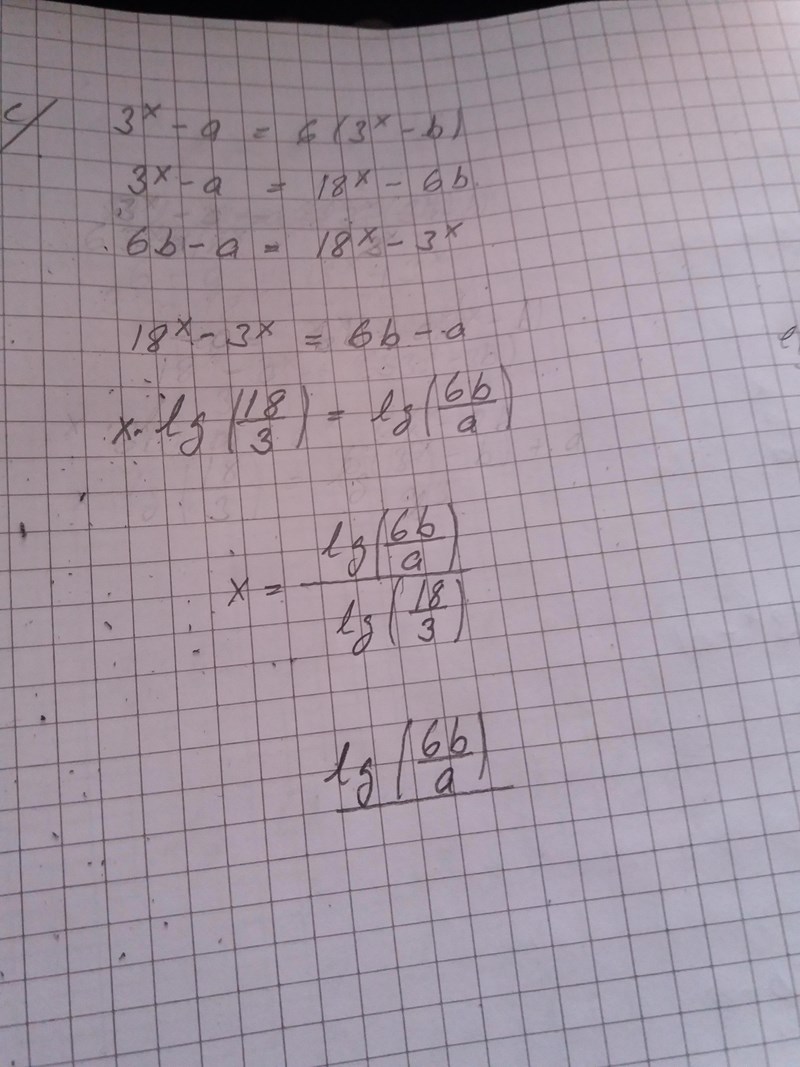 c)
3^x - a = 6 (3^x - b)
3^x - a = 18^x - 6b
6b - a = 18^x - 3^x
18^x - 3^x = 6b - a
x · lg (18/3) = lg (6b/a)
x = lg (6b/a) / lg (18/3)
lg (6b/a)